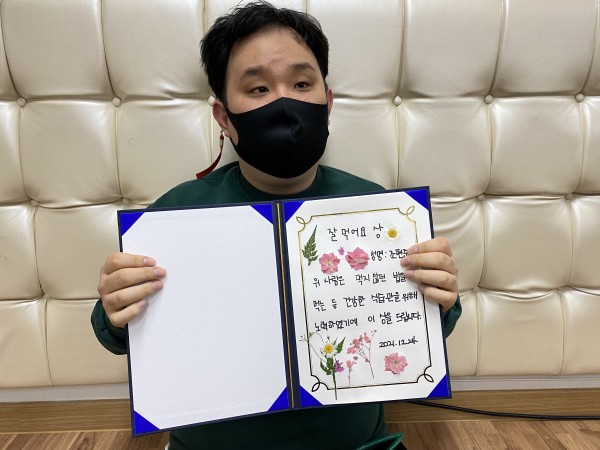 잘 먹어요 상
성명: 조현
위 사람은 먹지 않던 밥을
먹는 등 건강한 식습관을 위해
노력하였기에 이 상을 드립니다.
2021. 12. 24.